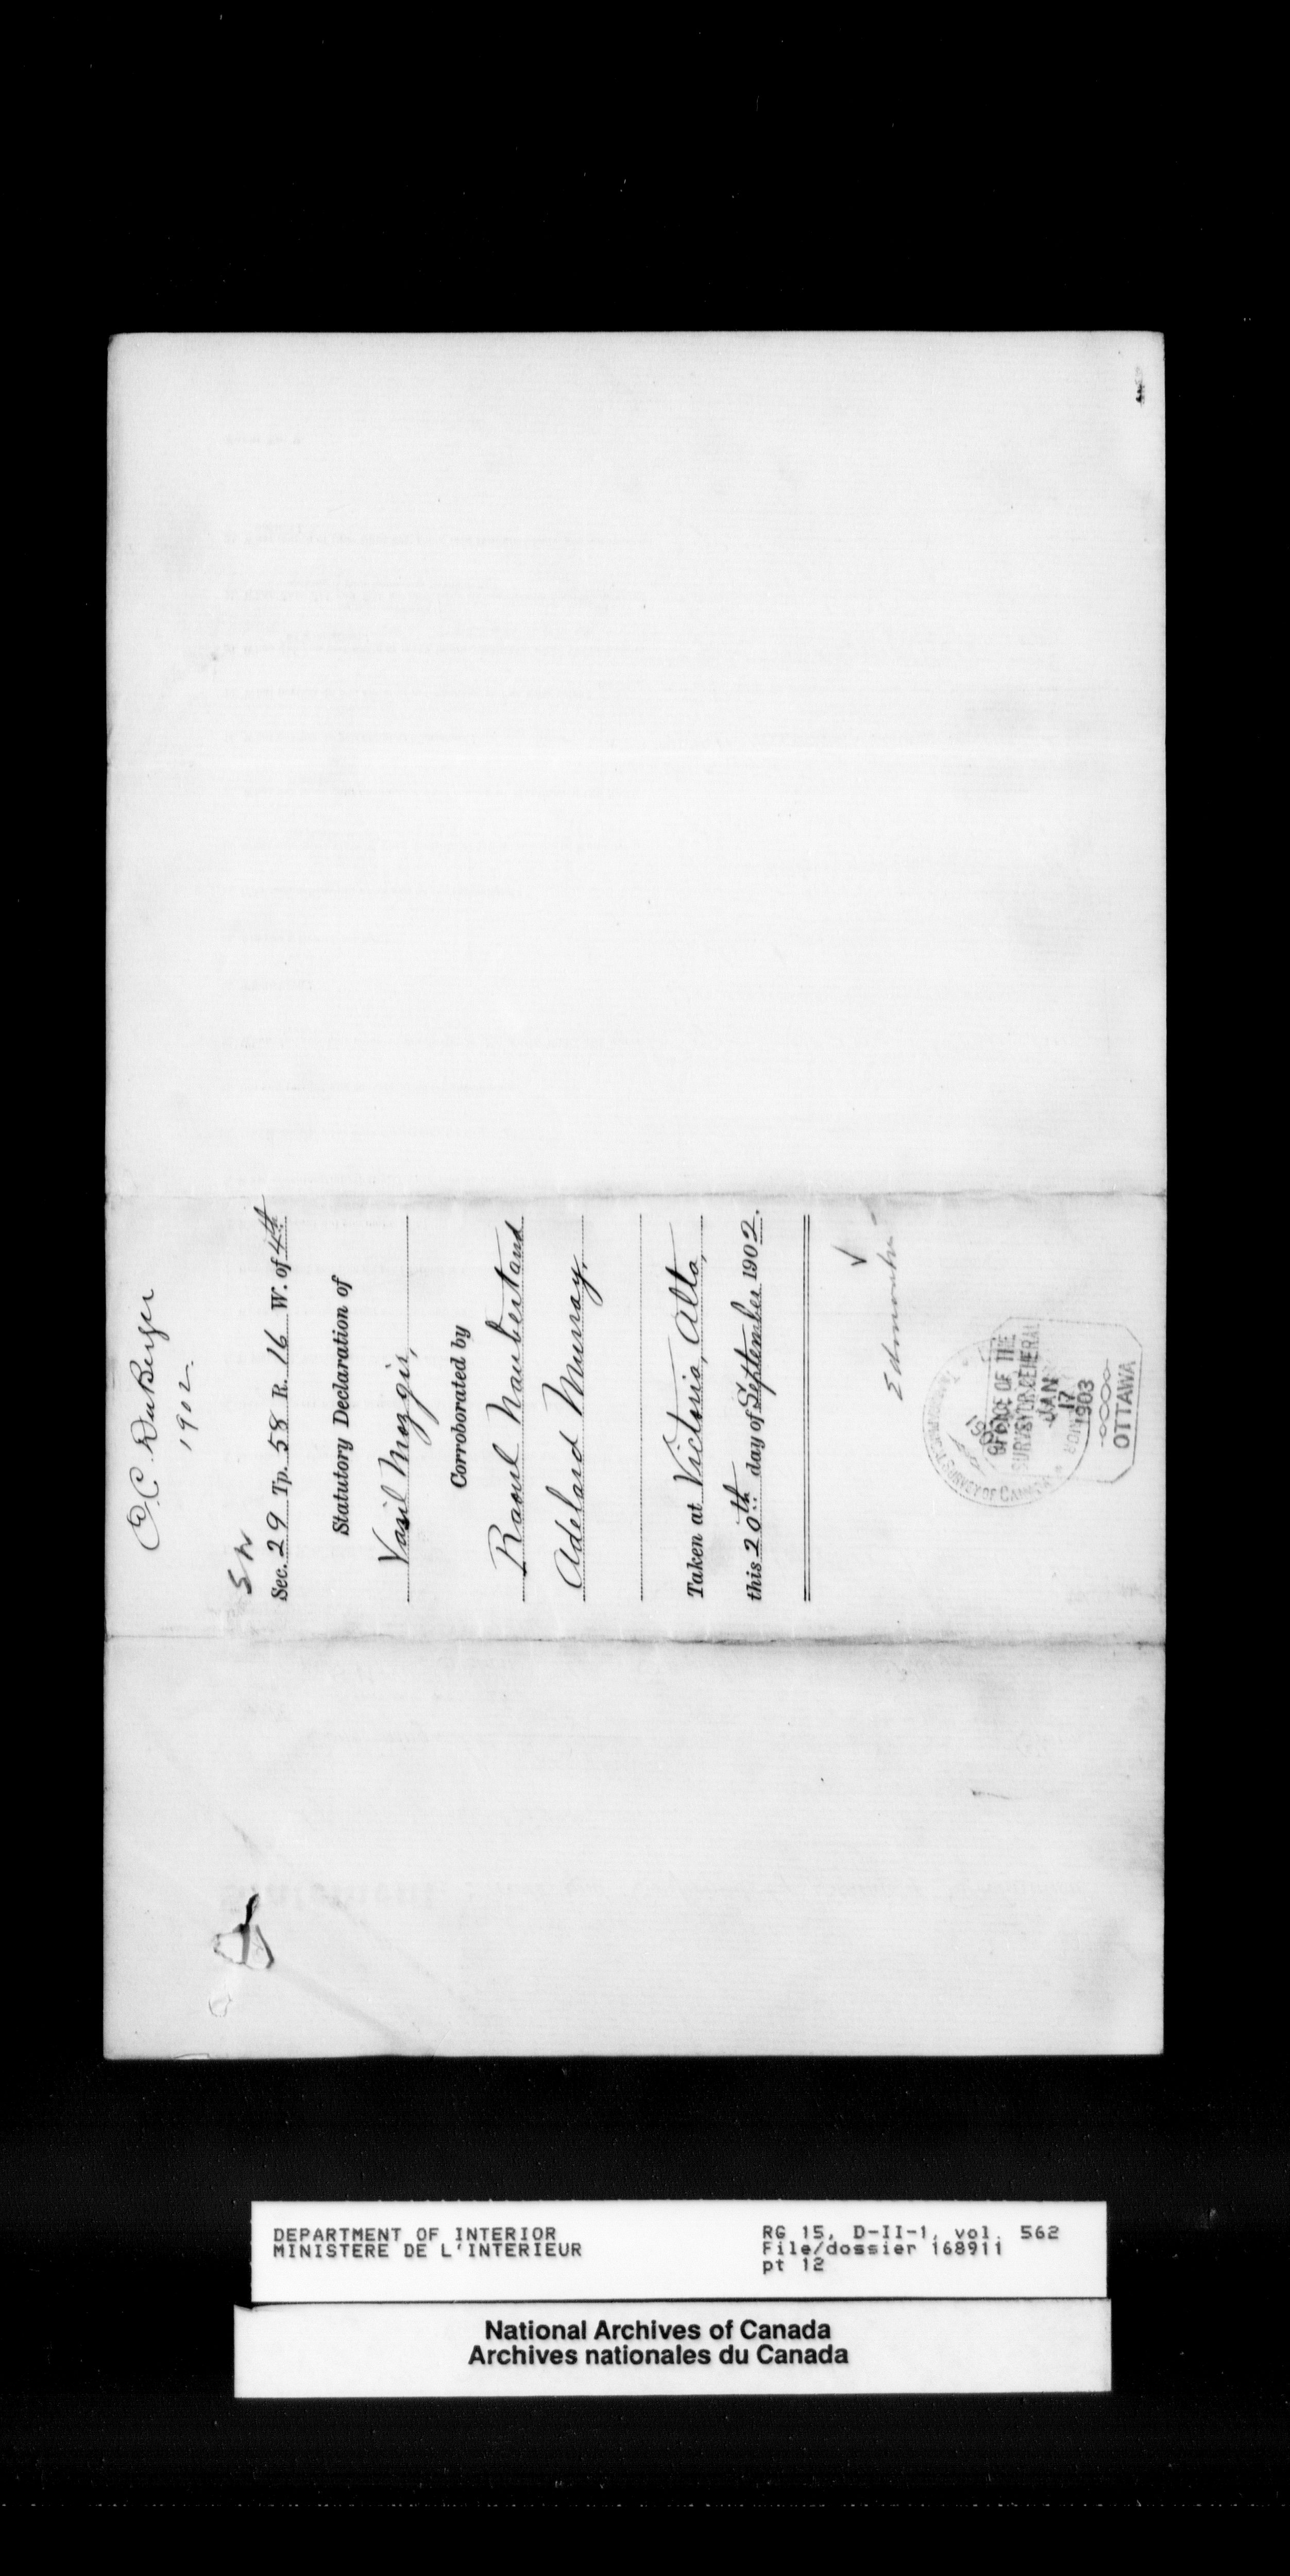 C. DuBerger
1902.
SW
Sec. 29 Tp. 58 R. 16 W. of 4th
Statutory Declaration of
Vasil Mozgis,
Corroborated by
Raoul Naubert and
Adelard Murray,
Taken at Victoria, Alta,
this 20th day of September 1902.
Edmonton
OFFICE OF THE
SURVEYOR GENERAL
JAN
17
1903
OTTAWA
SURVEY OF CANADA
DEPARTMENT OF INTERIOR
MINISTERE DE L'INTERIEUR
RG 15, D-II-1, vol. 562
File/dossier 168911
pt 12
National Archives of Canada
Archives nationales du Canada